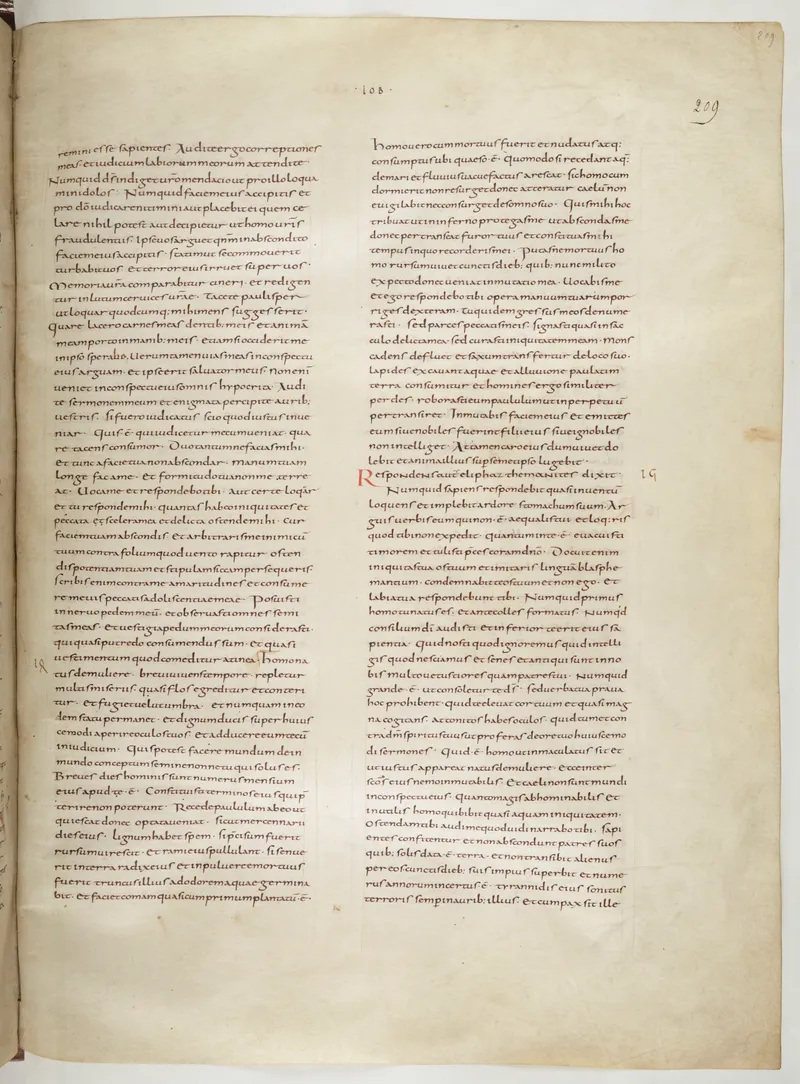 · IOB ·
209
209
remini esse sapientes. Audite ergo correptiones
meas et iudicium labiorum meorum attendite
Numquid dſ indiget uro mendacio ut pro illo loqua
mini dolos. Numquid faciem eius accipitis et
pro dō iudicare nitimini aut placebit ei quem ce
lare nihil potest aut decipietur ut homo urīs
fraudulentiis. Ipse uos arguet qnm in abscondito
faciem eius accipitis. statim ut se commouerit
turbabit uos et terror eius irruet super uos.
Memoria ūra comparabitur cineri et redigen
tur in lutum ceruices ūrae. Tacete paulisper
ut loquar quodcumq; mihi mens suggesserit.
Quare lacero carnes meas dentib; meis et animā
meam porto in manib; meis. etiam si occiderit me
in ipso sperabo. Uerumtamen uias meas in conspectu
eius arguam. et ipse erit saluator meus. Non enī
ueniet in conspectu eius omnis hypocrita. Audi
te sermonem meum et enigmata percipite aurib;
uestris. si fuero iudicatus scio quod iustus inue
niar. Quis ē qui iudicetur mecum ueniat. qua
re tacens consumor. Duo tantum ne facias mihi.
et tunc a facie tua non abscondar. manum tuam
longe fac a me. et formido tua non me terre
at. Uoca me et respondebo tibi. Aut certe loqar
et tu responde mihi. quantas habeo iniquitates et
peccata et scelera mea et delicta ostende mihi. Cur
faciem tuam abscondis et arbitraris me inimicū
tuum contra folium quod uento rapitur osten
dis potentiam tuam et stipulam siccam persequeris.
scribis enim contra me amaritudines et consume
re me uis peccatis adolescentiae meae. Posuisti
in neruo pedem meū. et obseruasti omnes semi
tas meas. et uestigia pedum meorum considerasti.
qui quasi putredo consumendus sum. et quasi
uestimentum quod comeditur a tinea. homo na
tus de muliere. breui uiuens tempore. repletur
multis miseriis. quasi flos egreditur et conteri
tur. et fugit uelut umbra. et numquam in eo
dem statu permanet. et dignum ducis super huius
cemodi aperire oculos tuos. et adducere eum tecū
in iudicium. Quis potest facere mundum de in
mundo conceptum semine nonne tu qui solus es.
Breues dies hominis sunt numerus mensium
eius apud te ē. Constituisti terminos eius qui p
teriri non poterunt. Recede paululum ab eo ut
quiescat donec optata ueniat. sicut mercennarii
dies eius. lignum habet spem. si pcisum fuerit
rursum uirescit. et rami eius pullulant. si senue
rit in terra radix eius et in puluere emortuus
fuerit truncus illius ad odorem aquae germina
bit. et faciet comam quasi cum primum plantatū ē.
homo uero cum mortuus fuerit et nudatus atq;
consumptus ubi quaeso ē. Quomodo si recedant aq;
de mari et fluuius uacuefactus arescat. sic homo cum
dormierit non resurget donec atteratur caelū non
euigilabit nec consurget de somno suo. Quis mihi hoc
tribuat ut in inferno protegas me ut abscondas me
donec pertranseat furor tuus et constituas mihi
tempus in quo recorderis mei. Putasne mortuus ho
mo rursum uiuet cunctis dieb; quib; nunc milito
expecto donec ueniat inmutatio mea. Uocabis me
et ego respondebo tibi operi manuum tuarum por
riges dexteram. Tu quidem gressus meos denume
rasti. sed parces peccatis meis. signasti quasi in sac
culo delicta mea. sed curasti iniquitatem meam. Mons
cadens defluet et saxum transfertur de loco suo.
lapides excauant aquae et alluuione paulatim
terra consumitur et homines ergo similiter
perdes. roborasti eum paululum ut in perpetuū
pertransiret. Inmutabis faciem eius et emittes
eum siue nobiles fuerint filii eius siue ignobiles
non intelleget. Attamen caro eius dum uiuet do
lebit et anima illius sup semetipso lugebit.
Respondens autē eliphaz themanites dixit.
Numquid sapiens respondebit quasi in uentū
loquens et implebit ardore stomachum suum. Ar
guis uerbis eum qui non ē aequalis tui et loq;ris
quod tibi non expedit. quantum in te ē euacuasti
timorem et tulisti preces coram dnō. Docuit enim
iniquitas tua os tuum et imitaris linguā blasphe
mantium. condemnabit te os tuum et non ego. et
labia tua respondebunt tibi. Numquid primus
homo tu natus es. et ante colles formatus. Numqd
consilium dī audisti et inferior te erit eius sa
pientia. Quid nosti quod ignoremus quid intelli
gis quod nesciamus et senes et antiqui sunt in no
bis multo uetustiores quam patres tui. Numquid
grande ē ut consoletur te dſ. sed uerba tua praua
hoc prohibent. quid te eleuat cor tuum et quasi mag
na cogitans. attonitos habes oculos. quid tumet con
tra dm̄ spiritus tuus ut proferas de ore tuo huiuscemo
di sermones. Quid ē homo ut inmaculatus sit et
ut iustus appareat natus de muliere. ecce inter
scōs eius nemo inmutabilis. et caeli non sunt mundi
in conspectu eius. Quanto magis abhominabilis et
inutilis homo qui bibit quasi aquam iniquitatem.
Ostendam tibi audi me quod uidi narrabo tibi. sapi
entes confitentur et non abscondunt patres suos
quib; solis data ē terra. et non transibit alienus
per eos cunctis dieb; suis impius superbit et nume
rus annorum incertus ē tyrannidis eius. sonitus
terroris semp in aurib; illius. et cum pax sit ille